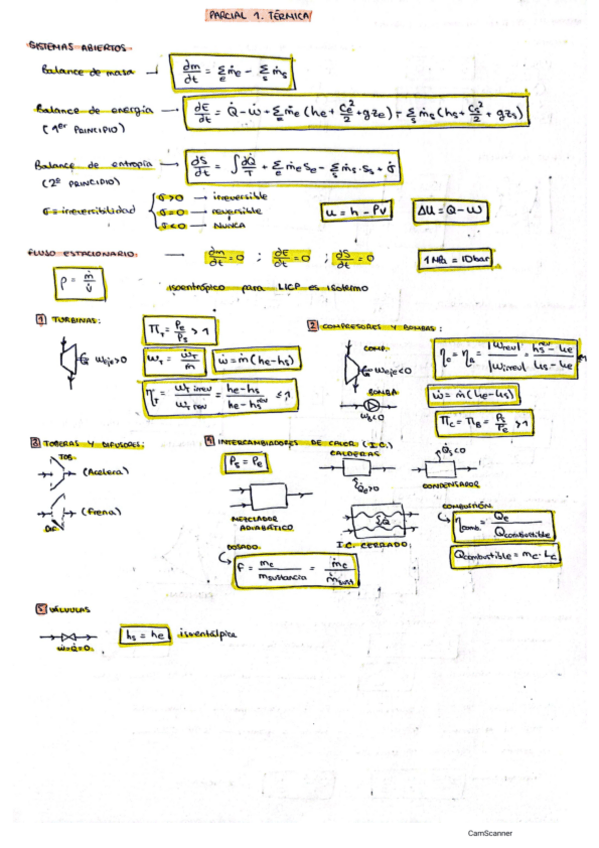 PARCIAL 1. TÉRMICA
SISTEMAS ABIERTOS
Balance de masa → dm/dt = Σe ṁe - Σs ṁs
Balance de energía → dE/dt = Q̇ - Ẇ + Σe ṁe (he + Ce²/2 + gze) - Σs ṁs (hs + Cs²/2 + gzs)
(1er PRINCIPIO)
Balance de entropía → dS/dt = ∫dQ̇/T + Σe ṁe se - Σs ṁs·ss + σ̇
(2º PRINCIPIO)
σ = irreversibilidad { σ>0 → irreversible
σ=0 → reversible
σ<0 → NUNCA
u = h - Pv
ΔU = Q - W
FLUJO ESTACIONARIO. → dm/dt = 0 ; dE/dt = 0 ; dS/dt = 0
1 MPa = 10 bar
ρ = ṁ/v̇
isoentrópico para LICP es isotermo
1 TURBINAS:
πT = Pe/Ps > 1
Weje>0
WT = ẆT/ṁ
ẇ = ṁ(he-hs)
ηT = WT irrev/WT rev = he-hs/he-hs rev ≤ 1
2 COMPRESORES Y BOMBAS:
COMP.
Weje<0
BOMBA
ẇ = ṁ(he-hs)
πC = πB = Ps/Pe > 1
3 TOBERAS Y DIFUSORES:
TOB.
(Acelera)
(Frena)
DIF.
4 INTERCAMBIADORES DE CALOR (I.C.)
Ps = Pe
CALDERAS
Q̇e>0
Q̇s<0
CONDENSADOR
MEZCLADOR
ADIABÁTICO
I.C. CERRADO
COMBUSTIÓN.
ηcomb. = Qe/Qcombustible
Qcombustible = mc·Lc
DOSADO.
F = mc/msustancia = ṁc/ṁsust
5 VÁLVULAS
ẇ=Q̇=0.
hs = he isentálpica
CamScanner